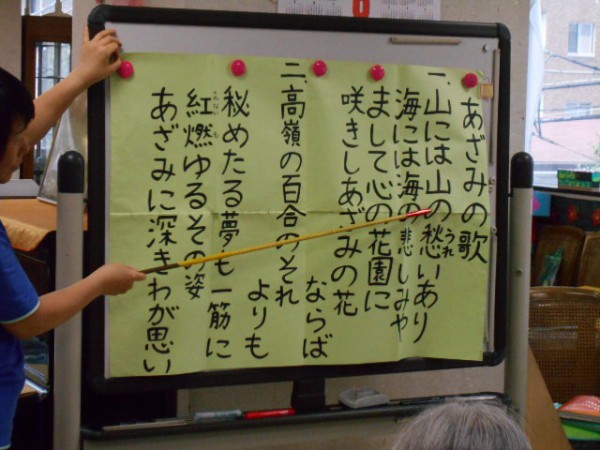 あざみの歌
一、山には山の愁いあり
うれ
海には海の悲しみや
まして心の花園に
咲きしあざみの花
ならば
二、高嶺の百合のそれ
よりも
秘めたる夢も一筋に
紅燃ゆるその姿
あざみに深きわが思い